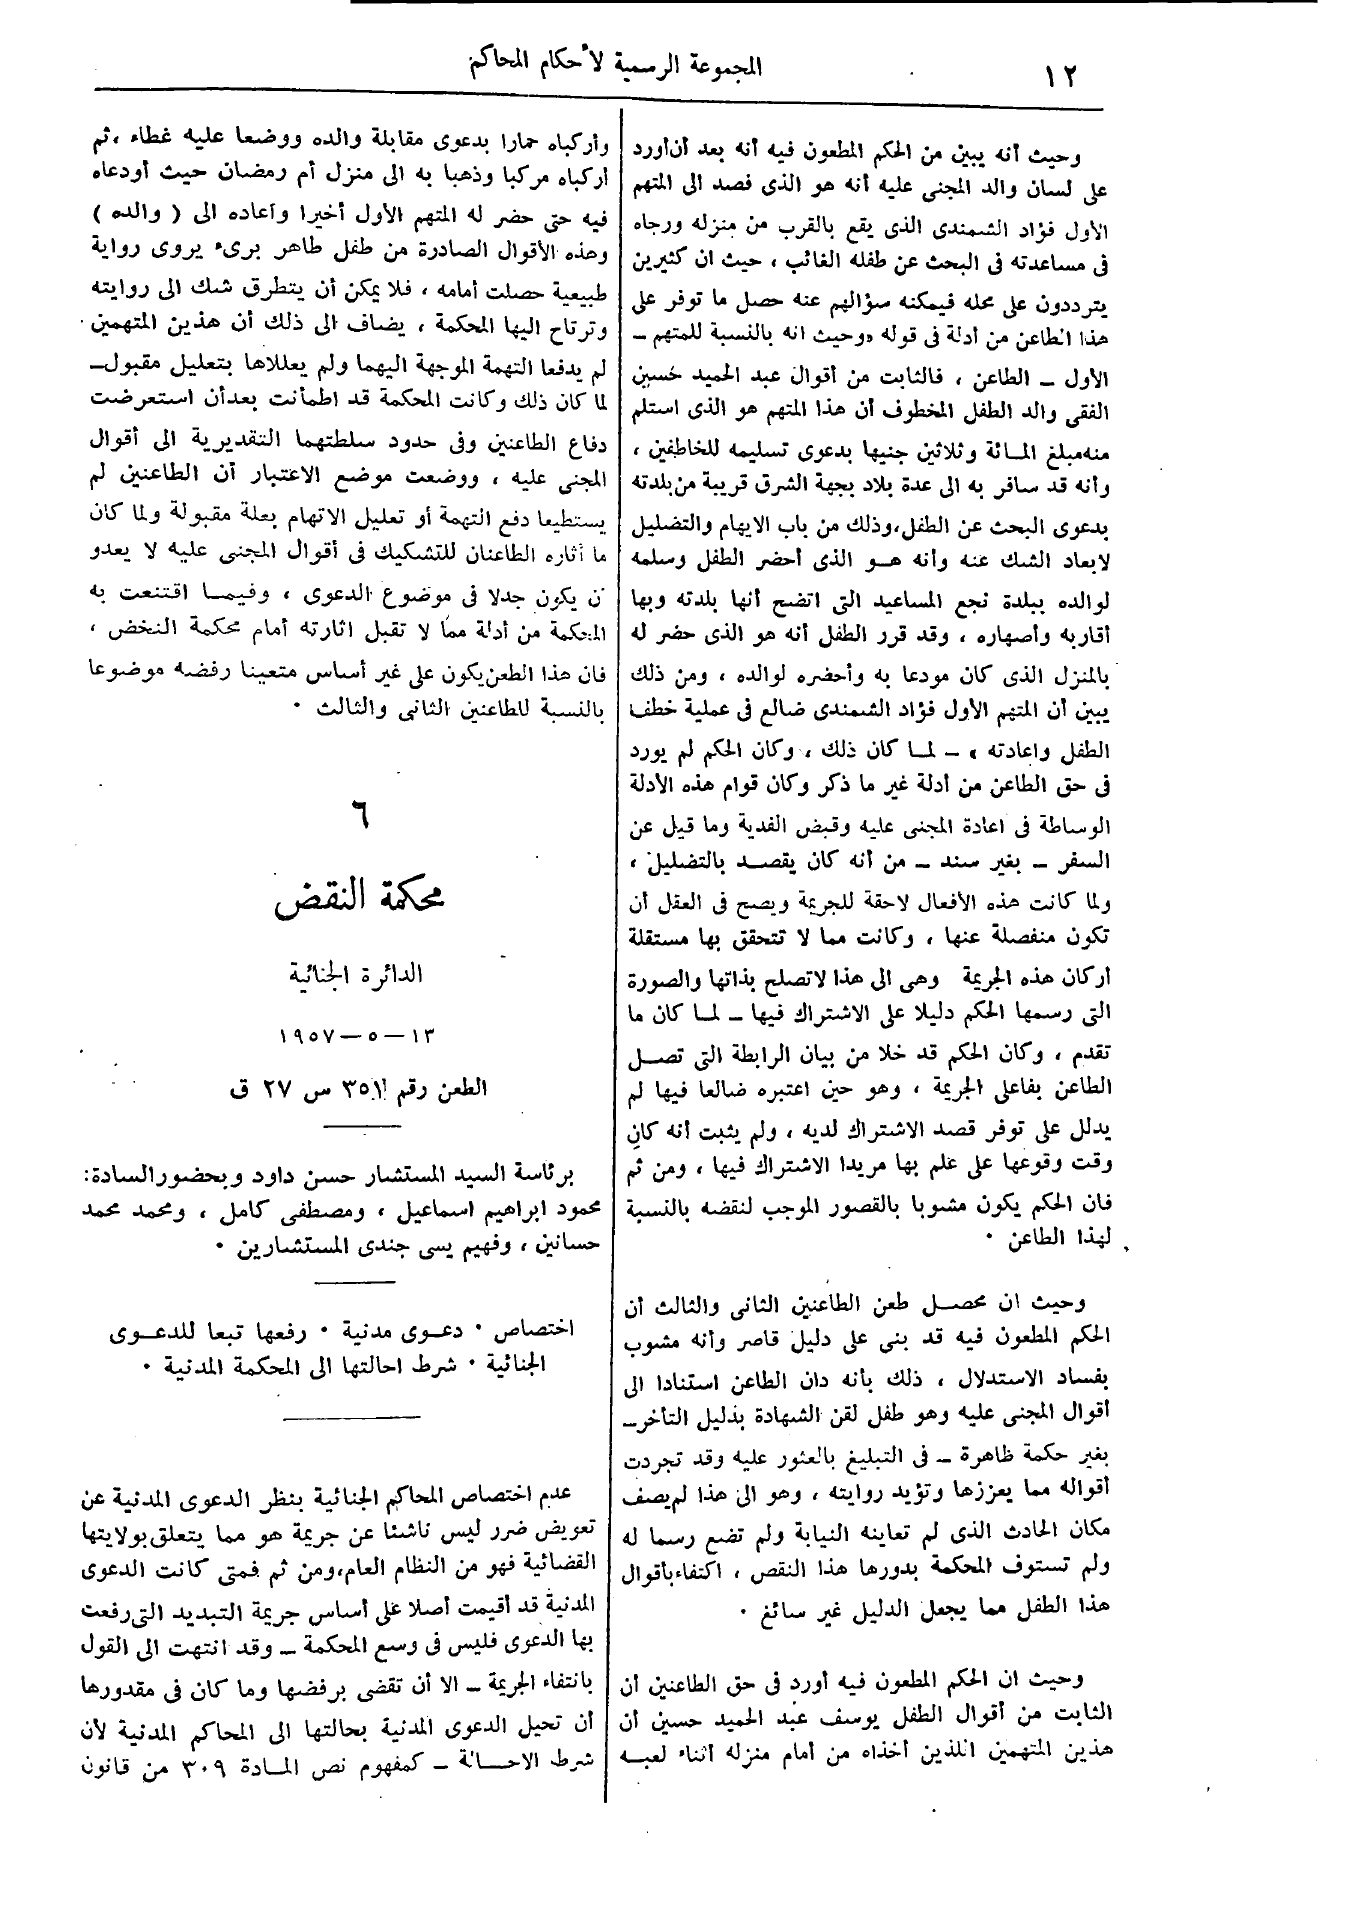 ١٢
المجموعة الرسمية لأحكام المحاكم
وحيث أنه يبين من الحكم المطعون فيه أنه بعد أن أورد
على لسان والد المجنى عليه أنه هو الذى قصد الى المتهم
الأول فؤاد الشمندى الذى يقع بالقرب من منزله ورجاه
فى مساعدته فى البحث عن طفله الغائب ، حيث ان كثيرين
يترددون على محله فيمكنه سؤالهم عنه حصل ما توفر على
هذا الطاعن من أدلة فى قوله «وحيث انه بالنسبة للمتهم ــ
الأول ــ الطاعن ، فالثابت من أقوال عبد الحميد حسين
الفقى والد الطفل المخطوف أن هذا المتهم هو الذى استلم
منه مبلغ المائة وثلاثين جنيها بدعوى تسليمه للخاطفين ،
وأنه قد سافر به الى عدة بلاد بجهة الشرق قريبة من بلدته
بدعوى البحث عن الطفل، وذلك من باب الايهام والتضليل
لابعاد الشك عنه وأنه هو الذى أحضر الطفل وسلمه
لوالده ببلدة نجع المساعيد التى اتضح أنها بلدته وبها
أقاربه وأصهاره ، وقد قرر الطفل أنه هو الذى حضر له
بالمنزل الذى كان مودعا به وأحضره لوالده ، ومن ذلك
يبين أن المتهم الأول فؤاد الشمندى ضالع فى عملية خطف
الطفل واعادته » ــ لما كان ذلك ، وكان الحكم لم يورد
فى حق الطاعن من أدلة غير ما ذكر وكان قوام هذه الأدلة
الوساطة فى اعادة المجنى عليه وقبض الفدية وما قيل عن
السفر ــ بغير سند ــ من أنه كان يقصد بالتضليل ،
ولما كانت هذه الأفعال لاحقة للجريمة ويصح فى العقل أن
تكون منفصلة عنها ، وكانت مما لا تتحقق بها مستقلة
أركان هذه الجريمة وهى الى هذا لا تصلح بذاتها والصورة
التى رسمها الحكم دليلا على الاشتراك فيها ــ لما كان ما
تقدم ، وكان الحكم قد خلا من بيان الرابطة التى تصل
الطاعن بفاعلى الجريمة ، وهو حين اعتبره ضالعا فيها لم
يدلل على توفر قصد الاشتراك لديه ، ولم يثبت أنه كان
وقت وقوعها على علم بها مريدا الاشتراك فيها ، ومن ثم
فان الحكم يكون مشوبا بالقصور الموجب لنقضه بالنسبة
لهذا الطاعن ٠
وحيث ان محصل طعن الطاعنين الثانى والثالث أن
الحكم المطعون فيه قد بنى على دليل قاصر وأنه مشوب
بفساد الاستدلال ، ذلك بأنه دان الطاعن استنادا الى
أقوال المجنى عليه وهو طفل لقن الشهادة بدليل التأخر ــ
بغير حكمة ظاهرة ــ فى التبليغ بالعثور عليه وقد تجردت
أقواله مما يعززها وتؤيد روايته ، وهو الى هذا لم يصف
مكان الحادث الذى لم تعاينه النيابة ولم تضع رسما له
ولم تستوف المحكمة بدورها هذا النقص ، اكتفاء بأقوال
هذا الطفل مما يجعل الدليل غير سائغ ٠
وحيث ان الحكم المطعون فيه أورد فى حق الطاعنين أن
الثابت من أقوال الطفل يوسف عبد الحميد حسين أن
هذين المتهمين اللذين أخذاه من أمام منزله أثناء لعبه
وأركباه حمارا بدعوى مقابلة والده ووضعا عليه غطاء ، ثم
أركباه مركبا وذهبا به الى منزل أم رمضان حيث أودعاه
فيه حتى حضر له المتهم الأول أخيرا وأعاده الى ( والده )
وهذه الأقوال الصادرة من طفل طاهر برىء يروى رواية
طبيعية حصلت أمامه ، فلا يمكن أن يتطرق شك الى روايته
وترتاح اليها المحكمة ، يضاف الى ذلك أن هذين المتهمين
لم يدفعا التهمة الموجهة اليهما ولم يعللاها بتعليل مقبول ــ
لما كان ذلك وكانت المحكمة قد اطمأنت بعد أن استعرضت
دفاع الطاعنين وفى حدود سلطتهما التقديرية الى أقوال
المجنى عليه ، ووضعت موضع الاعتبار أن الطاعنين لم
يستطيعا دفع التهمة أو تعليل الاتهام بعلة مقبولة ولما كان
ما أثاره الطاعنان للتشكيك فى أقوال المجنى عليه لا يعدو
ن يكون جدلا فى موضوع الدعوى ، وفيما اقتنعت به
المحكمة من أدلة مما لا تقبل اثارته أمام محكمة النقض ،
فان هذا الطعن يكون على غير أساس متعينا رفضه موضوعا
بالنسبة للطاعنين الثانى والثالث ٠
٦
محكمة النقض
الدائرة الجنائية
١٣ــ ٥ ــ ١٩٥٧
الطعن رقم ٣٥١ س ٢٧ ق
برئاسة السيد المستشار حسن داود وبحضور السادة:
محمود ابراهيم اسماعيل ، ومصطفى كامل ، ومحمد محمد
حسانين ، وفهيم يسى جندى المستشارين ٠
اختصاص ٠ دعوى مدنية ٠ رفعها تبعا للدعوى
الجنائية ٠ شرط احالتها الى المحكمة المدنية ٠
عدم اختصاص المحاكم الجنائية بنظر الدعوى المدنية عن
تعويض ضرر ليس ناشئا عن جريمة هو مما يتعلق بولايتها
القضائية فهو من النظام العام، ومن ثم فمتى كانت الدعوى
المدنية قد أقيمت أصلا على أساس جريمة التبديد التى رفعت
بها الدعوى فليس فى وسع المحكمة ــ وقد انتهت الى القول
بانتفاء الجريمة ــ الا أن تقضى برفضها وما كان فى مقدورها
أن تحيل الدعوى المدنية بحالتها الى المحاكم المدنية لأن
شرط الاحالة ــ كمفهوم نص المادة ٣٠٩ من قانون